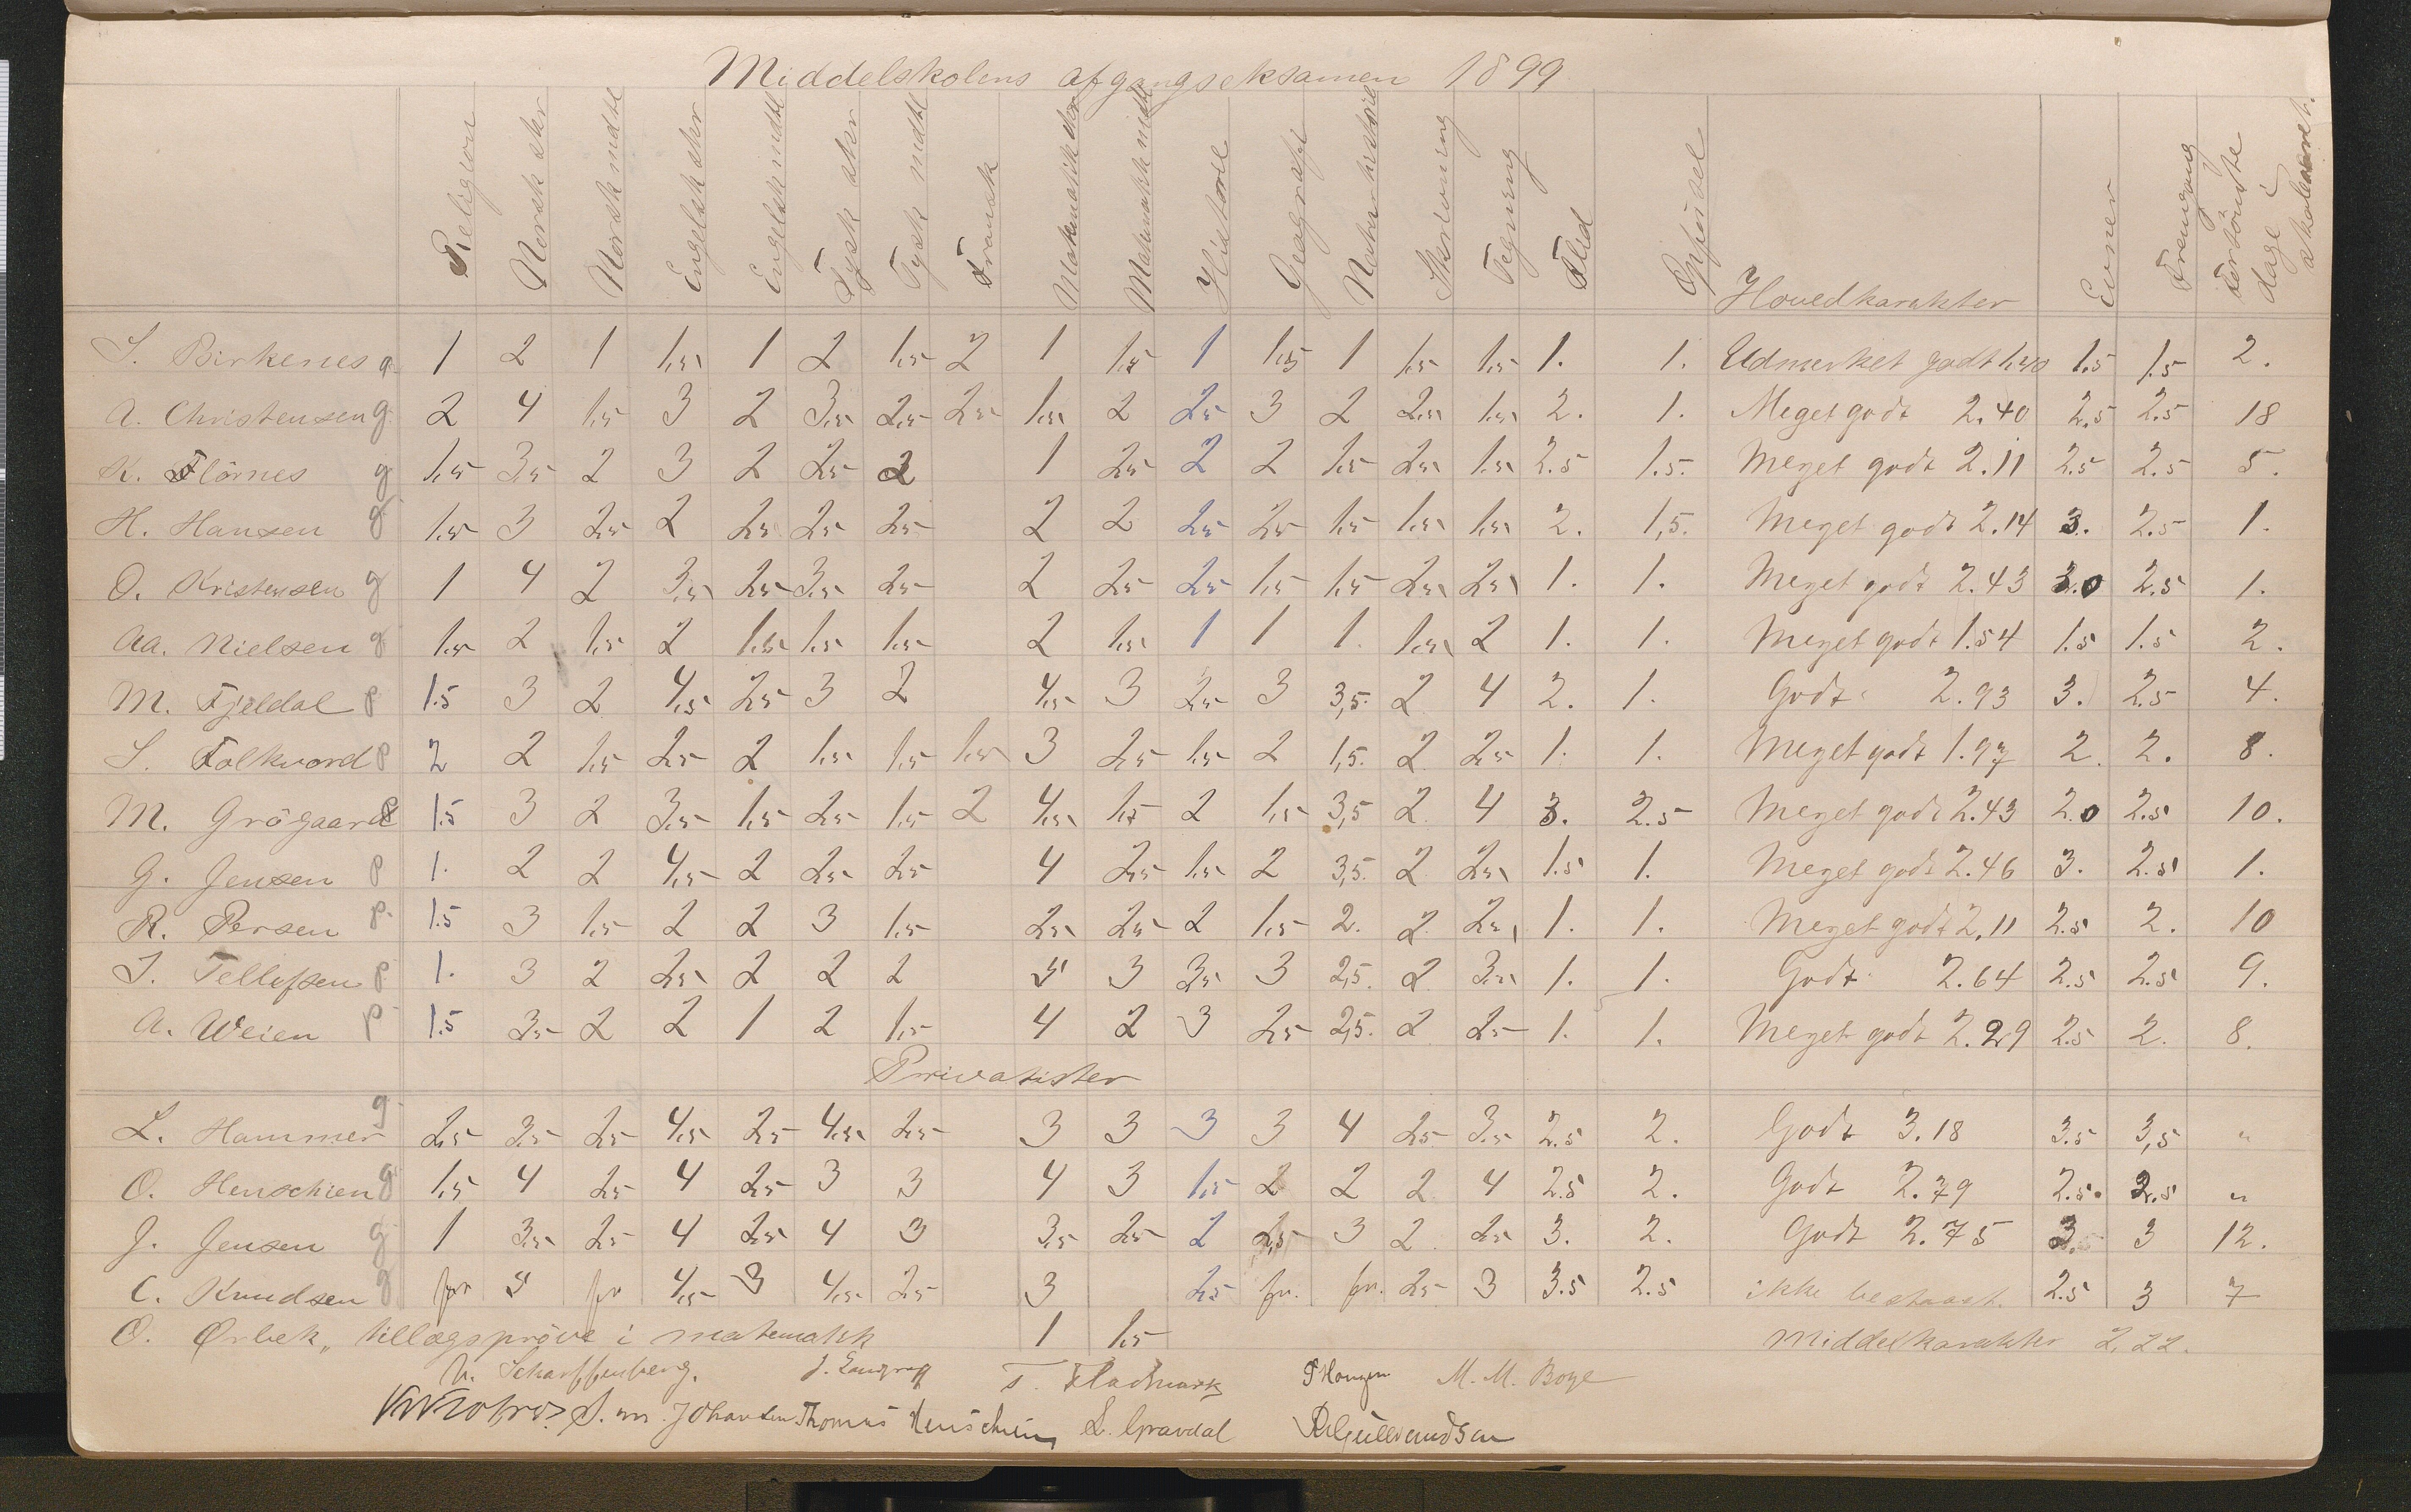 Middelskolens afgangseksamen 1899
Religion Norsk skr Norsk mdtl Engelsk skr Engelsk mdtl Tysk skr Tysk mdtl Fransk Matematik skr Matematikk mdtl Historie Geografi Naturhistorie Skrivning Tegning Flid Opförsel Hovedkarakter Evner Fremgang Forsömte dage i skoleaaret.
S. Birkenes g. 1 2 1 1.5 1 2 1.5 2 1 1.5 1 1.5 1 1.5 1.5 1. 1. Udmerket godt 1.40 1.5 1.5 2.
A. Christensen g. 2 4 1.5 3 2 3.5 2.5 2.5 1.5 2 2.5 3 2 2.5 1.5 2. 1. Meget godt 2.40 2.5 2.5 18
K. Flörnes g 1.5 3.5 2 3 2 2.5 2 1 2.5 2 2 1.5 2.5 1.5 2.5 1.5. Meget godt 2.11 2.5 2.5 5.
H. Hansen g 1.5 3 2.5 2 2.5 2.5 2.5 2 2 2.5 2.5 1.5 1.5 1.5 2. 1,5. Meget godt 2.14 3. 2.5 1.
O. Kristensen g 1 4 2 3.5 2.5 3.5 2.5 2 2.5 2.5 1.5 1.5 2.5 2.5 1. 1. Meget godt 2.43 3.0 2.5 1.
Aa. Nielsen g 1.5 2 1.5 2 1.5 1.5 1.5 2 1.5 1 1 1. 1.5 2 1. 1. Meget godt 1.54 1.5 1.5 2.
M. Fjeldal p 1.5 3 2 4.5 2.5 3 2 4.5 3 2.5 3 3,5. 2 4 2. 1. Godt 2.93 3. 2.5 4.
S. Folkvord p 2 2 1.5 2.5 2 1.5 1.5 1.5 3 2.5 1.5 2 1,5. 2. 2.5 1. 1. Meget godt 1.97 2. 2. 8.
M. Grögaard p 1.5 3 2 3.5 1.5 2.5 1.5 2 4.5 1.5 2 1.5 3,5 2. 4 3. 2.5 Meget godt 2.43 2.0 2.5 10.
G. Jensen p 1. 2 2 4.5 2 2.5 2.5 4 2.5 1.5 2 3,5. 2 2.5 1.5 1. Meget godt 2.46 3. 2.5 1.
R. Persen p. 1.5 3 1.5 2 2 3 1.5 2.5 2.5 2 1.5 2. 2. 2.5 1. 1. Meget godt 2.11 2.5 2. 10
J. Tellefsen p. 1. 3 2 2.5 2 2 2 5 3 3.5 3 2,5. 2. 3.5 1. 1. Godt 2.64 2.5 2.5 9.
A. Weien p 1.5 3.5 2 2 1 2 1.5 4 2 3 2.5 2,5. 2 2.5 1. 1. Meget godt 2.29 2.5 2. 8.
Privatister
L. Hammer g. 2.5 3.5 2.5 4.5 2.5 4.5 2.5 3 3 3 3 4 2.5 3.5 2.5 2. Godt 3.18 3.5 3,5 "
O. Henschien g 1.5 4 2.5 4 2.5 3 3 4 3 1.5 2 2 2. 4 2.5 2. Godt 2.79 2.5. 2.5 "
J. Jensen g 1 3.5 2.5 4 2.5 4 3 3.5 2.5 2 2,5 3 2. 2.5 3. 2. Godt 2.75 3. 3 12.
C. Knudsen g fr 5 fr 4.5 3 4.5 2.5 3 2.5 fr. fr. 2.5 3 3.5 2.5 ikke bestaaet. 2.5 3 7
O. Ørbek, tillægspröve i matematikk 1 1.5 Middelkarakter 2,22.
N. Scharffenberg. T. Fladmark M. M. Boye
S. m. Johansen Thomas Henschien L. Gravdal R. Gulbrandsen